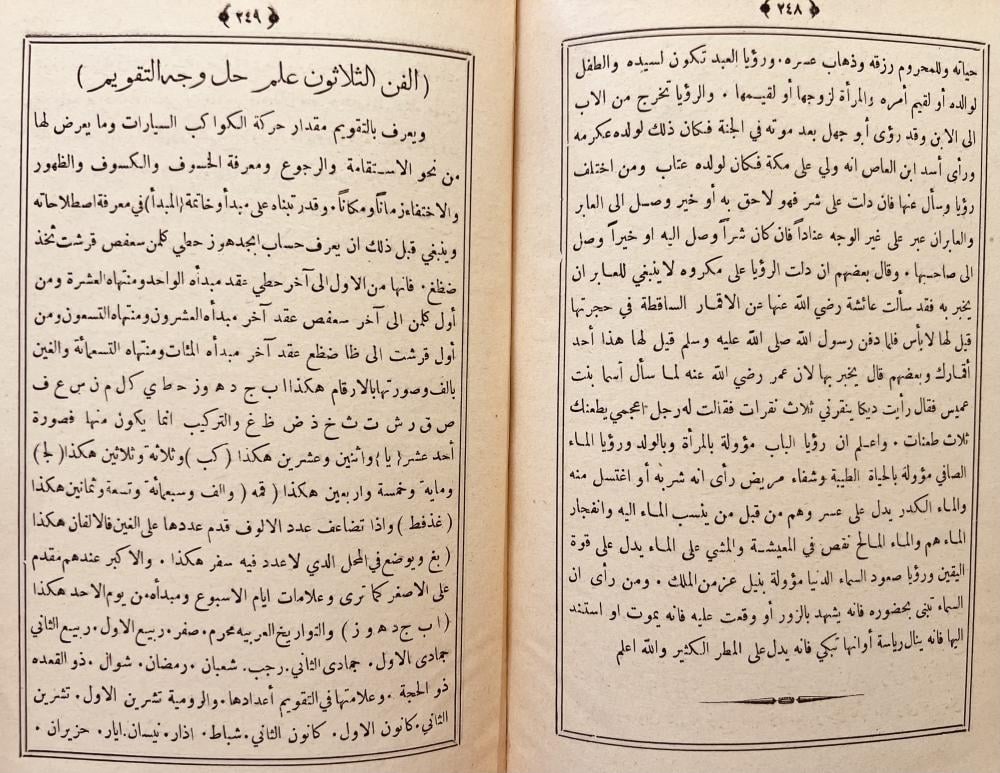 ﴿ ٢٤٨ ﴾
حياته وللمحروم رزقه وذهاب عسره . ورؤيا العبد تكون لسيده والطفل
لوالده أو لقيم أمره والمرأة لزوجها أو لقيمها . والرؤيا تخرج من الاب
الى الابن وقد رؤى أبو جهل بعد موته في الجنة فكان ذلك لولده عكرمه
ورأى أسد ابن العاص انه ولي على مكة فكان لولده عتاب ومن اختلف
رؤيا وسأل عنها فان دلت على شر فهو لاحق به أو خير وصل الى العابر
والعابران عبر على غير الوجه عناداً فان كان شراً وصل اليه او خيراً وصل
الى صاحبها . وقال بعضهم ان دلت الرؤيا على مكروه لاينبغي للعابر ان
يخبر به فقد سألت عائشة رضي الله عنها عن الاقمار الساقطة في حجرتها
قيل لها لابأس فلما دفن رسول الله صلى الله عليه وسلم قيل لها هذا أحد
أقمارك وبعضهم قال يخبر بها لان عمر رضي الله عنه لما سأل أسما بنت
عميس فقال رأيت ديكا ينقرني ثلاث نقرات فقالت له رجل اعجمي يطعنك
ثلاث طعنات . واعلم ان رؤيا الباب مؤولة بالمرأة وبالولد ورؤيا الماء
الصافي مؤولة بالحياة الطيبة وشفاء مريض رأى انه شربه أو اغتسل منه
والماء الكدر يدل على عسر وهم من قبل من ينسب الماء اليه وانفجار
الماء هم والماء المالح نقص في المعيشة والمشي على الماء يدل على قوة
اليقين ورؤيا صعود السماء الدنيا مؤولة بنيل عز من الملك . ومن رأى ان
السماء تبنى بحضوره فانه يشهد بالزور أو وقعت عليه فانه يموت او استند
اليها فانه ينال رياسة أوانها تبكي فانه يدل على المطر الكثير والله اعلم
﴿ ٢٤٩ ﴾
(الفن الثلاثون علم حل وجه التقويم)
ويعرف بالتقويم مقدار حركة الكواكب السيارات وما يعرض لها
من نحو الاستقامة والرجوع ومعرفة الخسوف والكسوف والظهور
والاختفاء زماناً ومكاناً . وقدرتبناه على مبدأ وخاتمة (المبدأ) في معرفة اصطلاحاته
وينبغي قبل ذلك ان يعرف حساب ابجد هوز حطي كلمن سعفص قرشت ثخذ
ضظغ . فانها من الاول الى آخر حطي عقد مبدأه الواحد ومنتهاه العشرة ومن
أول كلمن الى آخر سعفص عقد آخر مبدأه العشرون ومنتهاه التسعون ومن
أول قرشت الى ظا ضظغ عقد آخر مبدأه المئات ومنتهاه التسعمائة والغين
بالف وصورتها بالارقام هكذا ا ب ج د ه و ز ح ط ي ك ل م ن س ع ف
ص ق ر ش ت ث خ ذ ض ظ غ والتركيب انما يكون منها فصورة
أحد عشر ( يا ) واثنين وعشرين هكذا ( كب ) وثلاثة وثلاثين هكذا ( لج )
ومايه وخمسة واربعين هكذا ( قمه ( والف وسبعمائة وتسعة وثمانين هكذا
( غذفط ) واذا تضاعف عدد الالوف قدم عددها على الغين فالالفان هكذا
( بغ ويوضع في المحل الدي لا عدد فيه سفر هكذا . والاكبر عندهم مقدم
على الاصغر كما ترى وعلامات ايام الاسبوع ومبدأه من يوم الاحد هكذا
( ا ب ج د ه و ز ) والتواريخ العربيه محرم . صفر . ربيع الاول . ربيع الثاني
جمادى الاول . جمادى الثاني . رجب . شعبان . رمضان . شوال . ذو القعده
ذو الحجة . وعلامتها في التقويم أعدادها . والرومية تشرين الاول . تشرين
الثاني . كانون الاول . كانون الثاني . شباط . اذار . نيسان . ايار . حزيران .